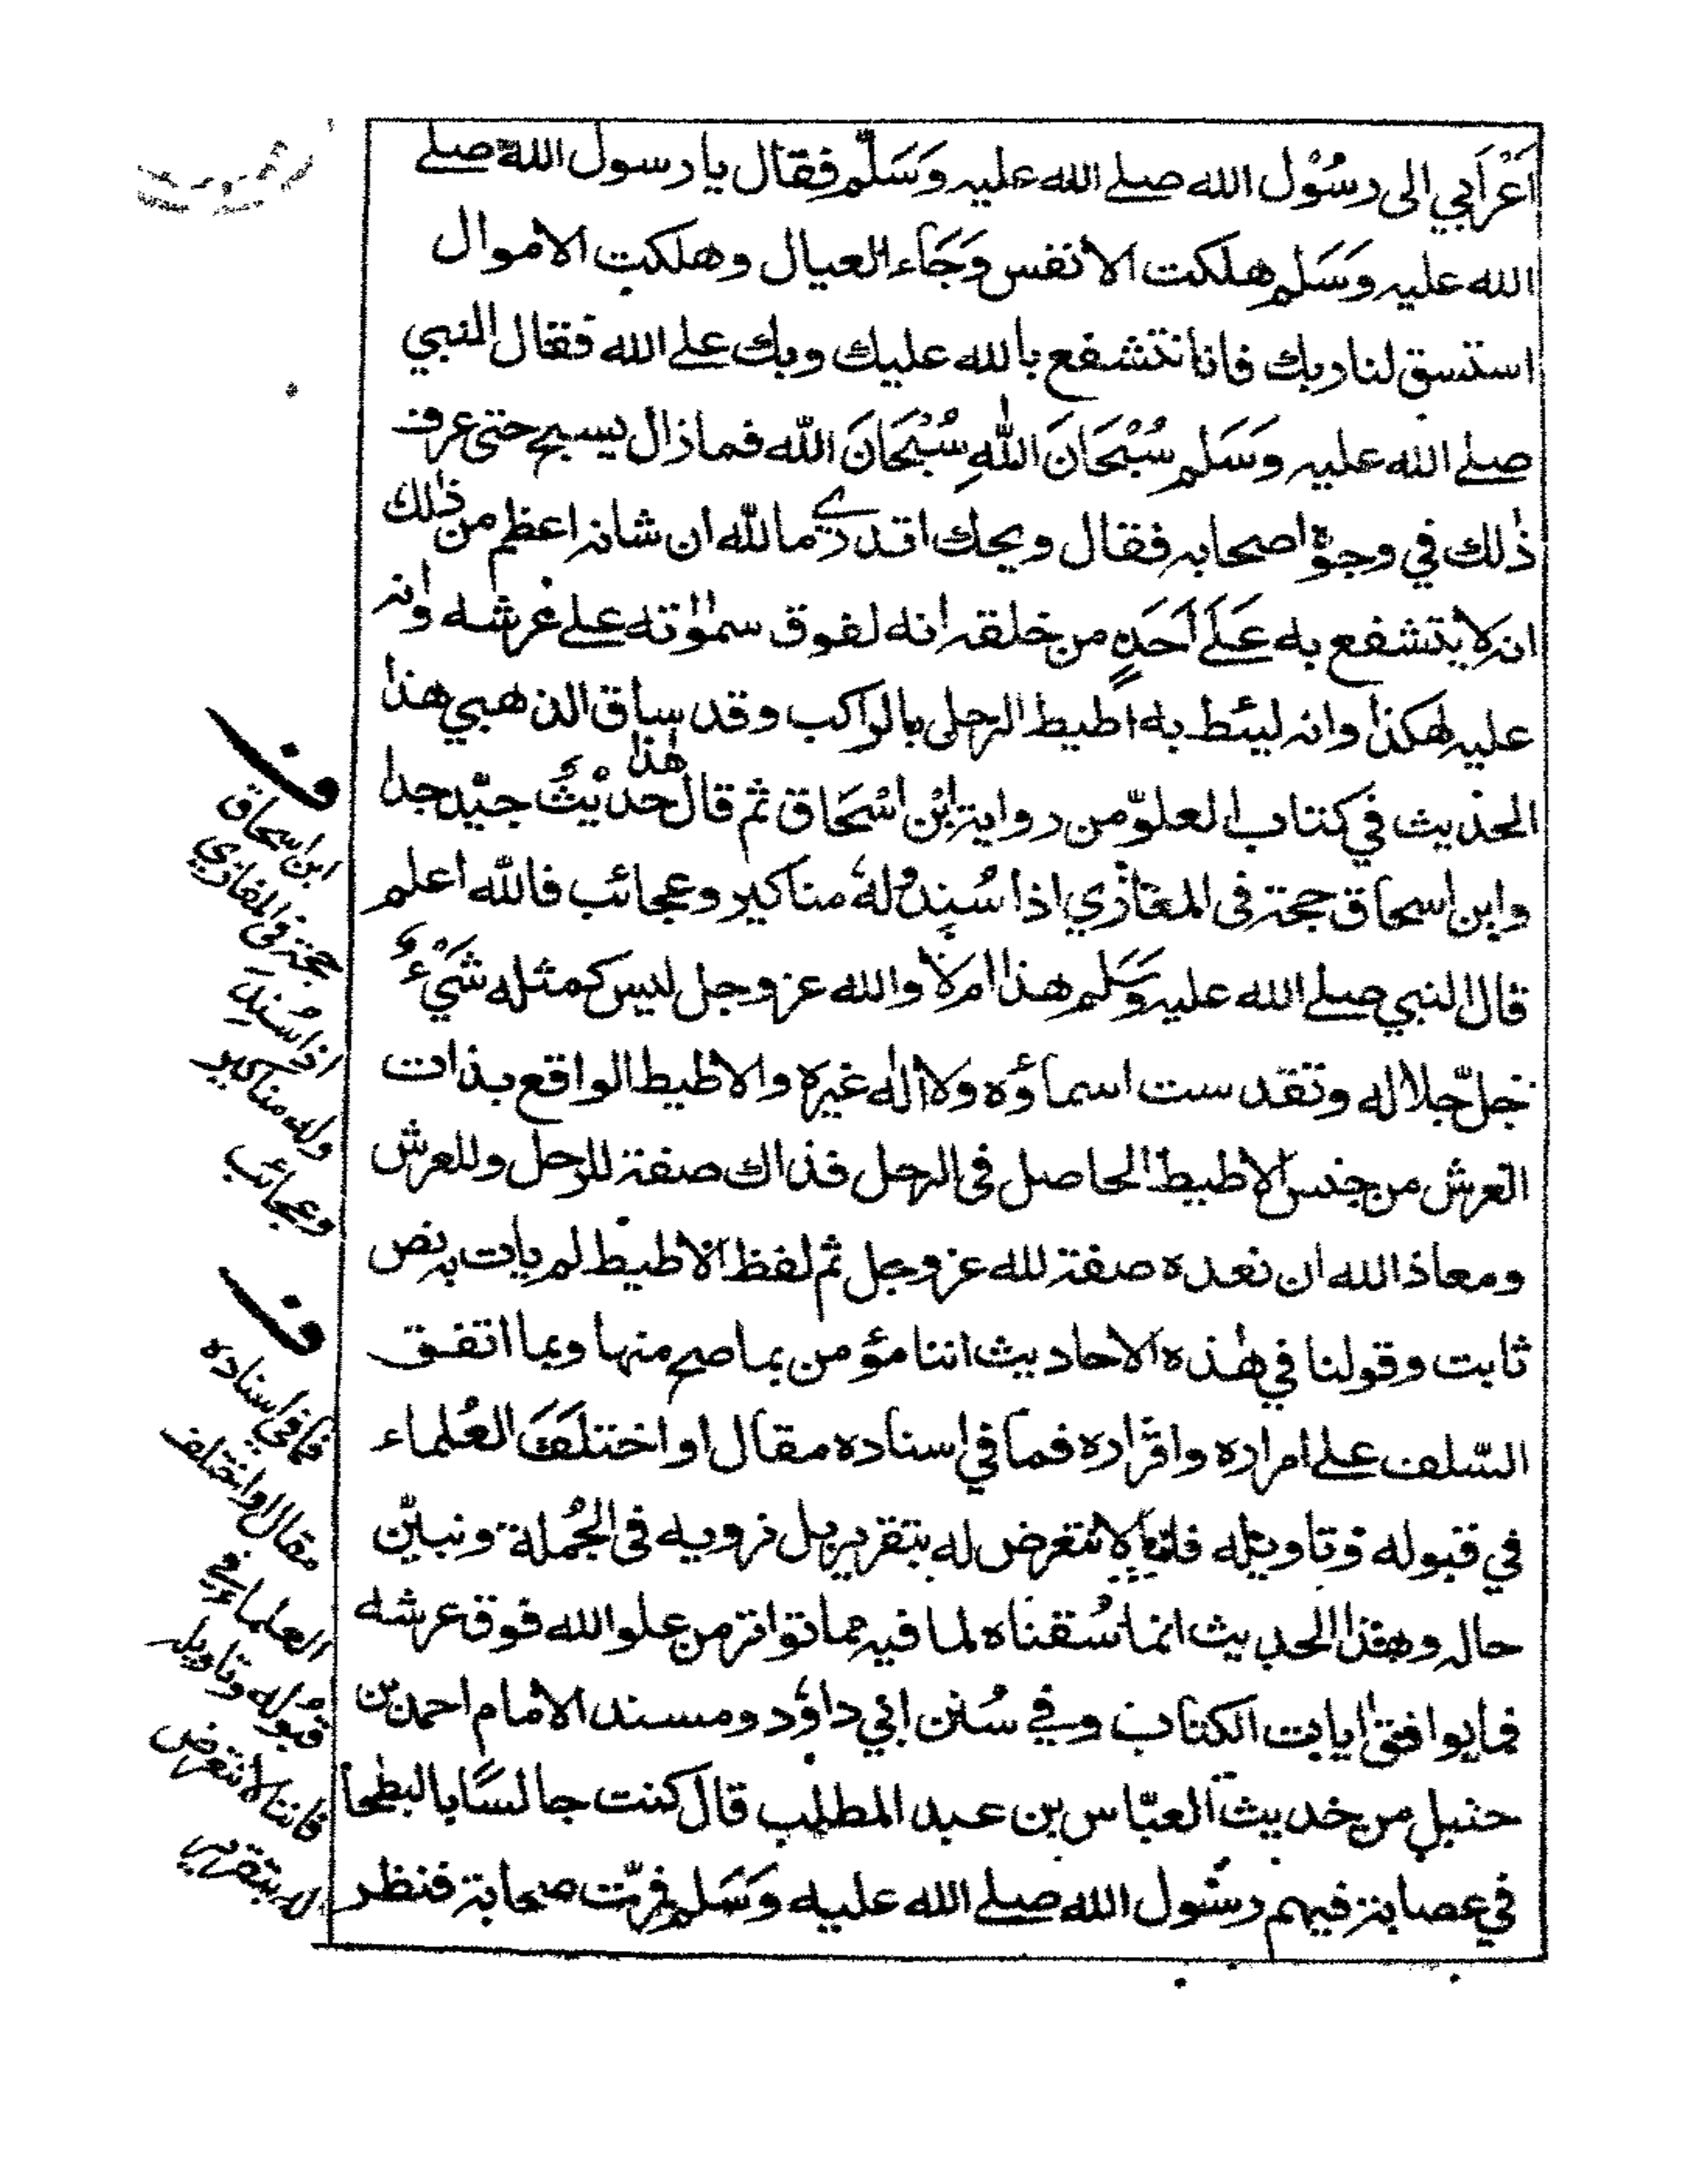 اَعْرَابي الى رسُوْل الله صلے الله عليه وَسَلّم فقال يا رسول الله صلے
الله عليه وَسَلم هلكت الانفس وَجَاء العيال وهلكت الاموال
استسق لنا ربك فانا نتشفع بالله عليك وبك علے الله فقال النبي
صلے الله عليه وَسَلم سُبْحَانَ اللهِ سُبْحَانَ الله فما زال يسبح حتى عرف
ذٰلك في وجوْة اصحابه فقال ويحك اتدرے ما لله ان شانه اعظم من ذٰلك
انه لا يتشفع به عَلَے اَحَدٍ من خلقه انه لفوق سمٰوٰته علے عرشه وانه
عليه لهكذا وانه ليئط به اطيط الرحل بالراكب وقد ساق الذهبي هذا
الحديث في كتاب العلوّ من رواية ابْن اسْحَاق ثم قال هٰذا حديْثٌ جيّد جدا
وابن اسحاق حجة فى المغازي اذا سُنِد ولهٗ مناكير وعجائب فالله اعلم
قال النبي صلے الله عليه وَسَلم هذا ام لا والله عز وجل ليس كمثله شَيْءٌ
جلّ جلاله وتقدست اسماؤه ولا اله غيره والاطيط الواقع بذات
العرش من جنس الاطيط الحاصل فى الرحل فذاك صفة للرحل وللعرش
ومعاذ الله ان نعده صفة لله عز وجل ثم لفظ الاطيط لم يات به نص
ثابت وقولنا في هٰذه الاحاديث اننا مؤمن بما صح منها وبما اتفق
السّلف علے امراره واقراره فما في اسناده مقال او اختلَفَ العُلماء
في قبوله وتاويله فاننا لا نتعرض له بتقرير بل نرويه فى الجُملة ونبيّن
حاله وهذا الحديث انما سُقناه لما فيه مما تواتر من علو الله فوق عرشه
فما يوافق ايات الكتاب وفي سُنن ابي داوٗد ومسند الامام احمد بن
حنبل من حديث العبّاس بن عبد المطلب قال كنت جالسًا بالبطحا
في عصابة فيهم رسُول الله صلے الله عليه وَسَلم فمرّت صحابة فنظر
ف
ابن اسحاق
حجة فى المغازي
اذا سُنِدَ
وله مناكير
وعجائب
ف
فما في اسناده
مقال او اختلف
العلماء في
قبُوله وتاويله
فاننا لا نتعرض
له بتقرير